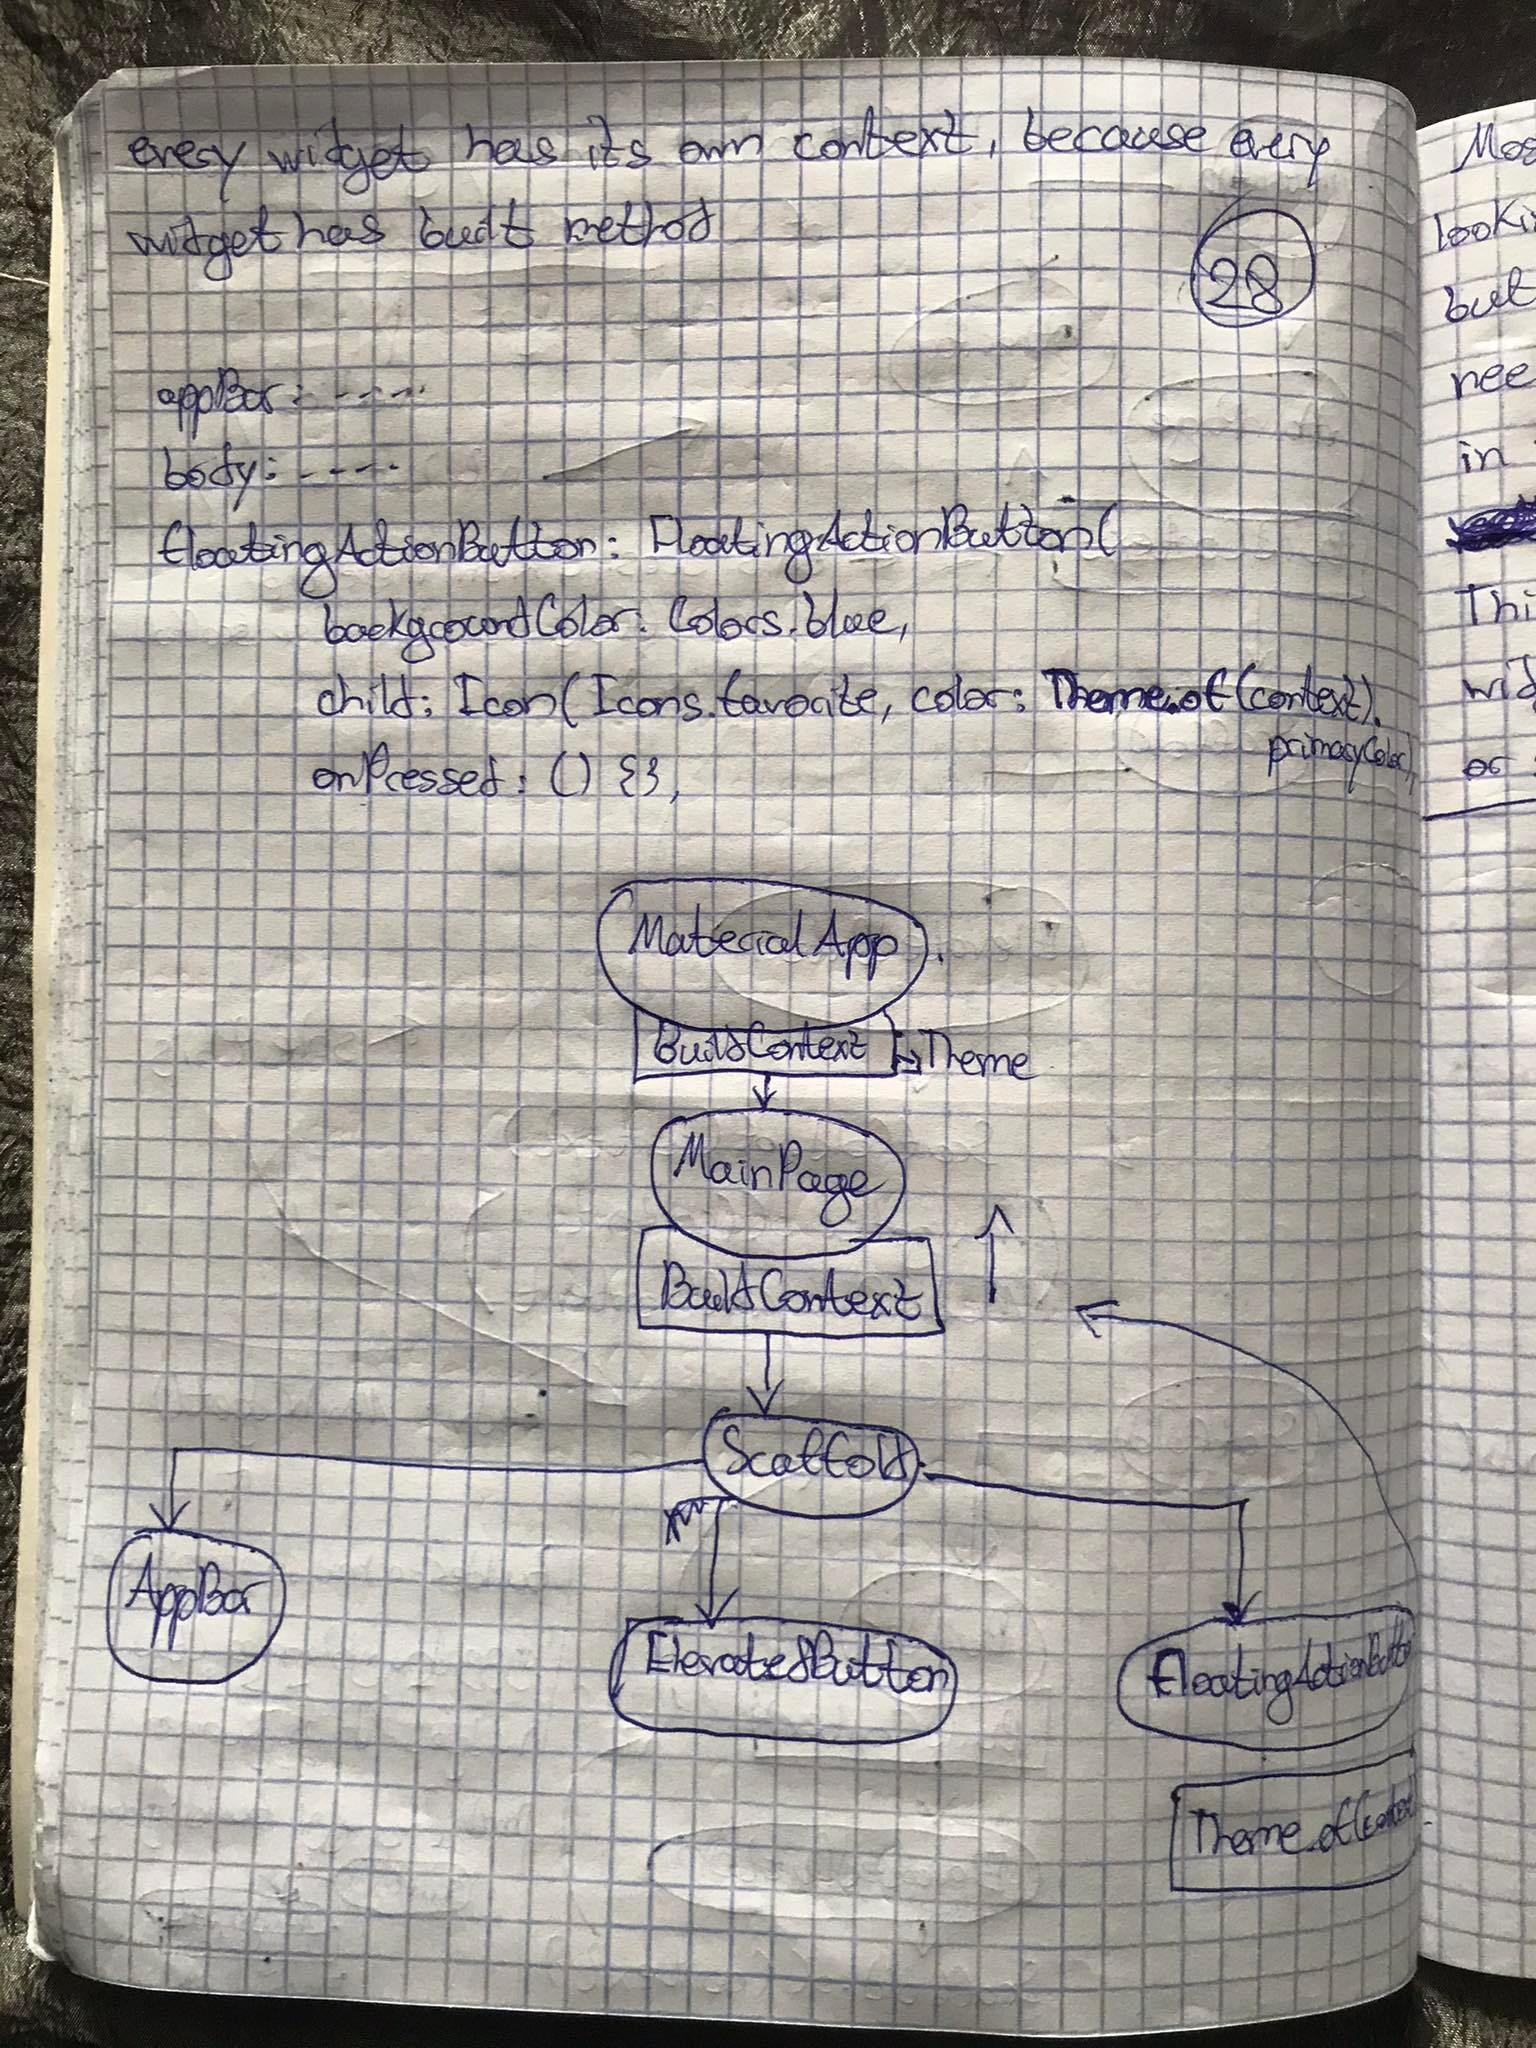 every widget has its own context, because every
widget has built method
28
appBar: - - - -
body: - - - -
floatingActionButton: FloatingActionButton(
backgroundColor: Colors.blue,
child: Icon(Icons.favorite, color: Theme.of(context).
primaryColor),
onPressed: () {},
MaterialApp
BuildContext → Theme
MainPage
BuildContext
Scaffold
AppBar
ElevatedButton
FloatingActionButton
Theme.of(context)
Mos
looki
but
nee
in
Thi
wid
or